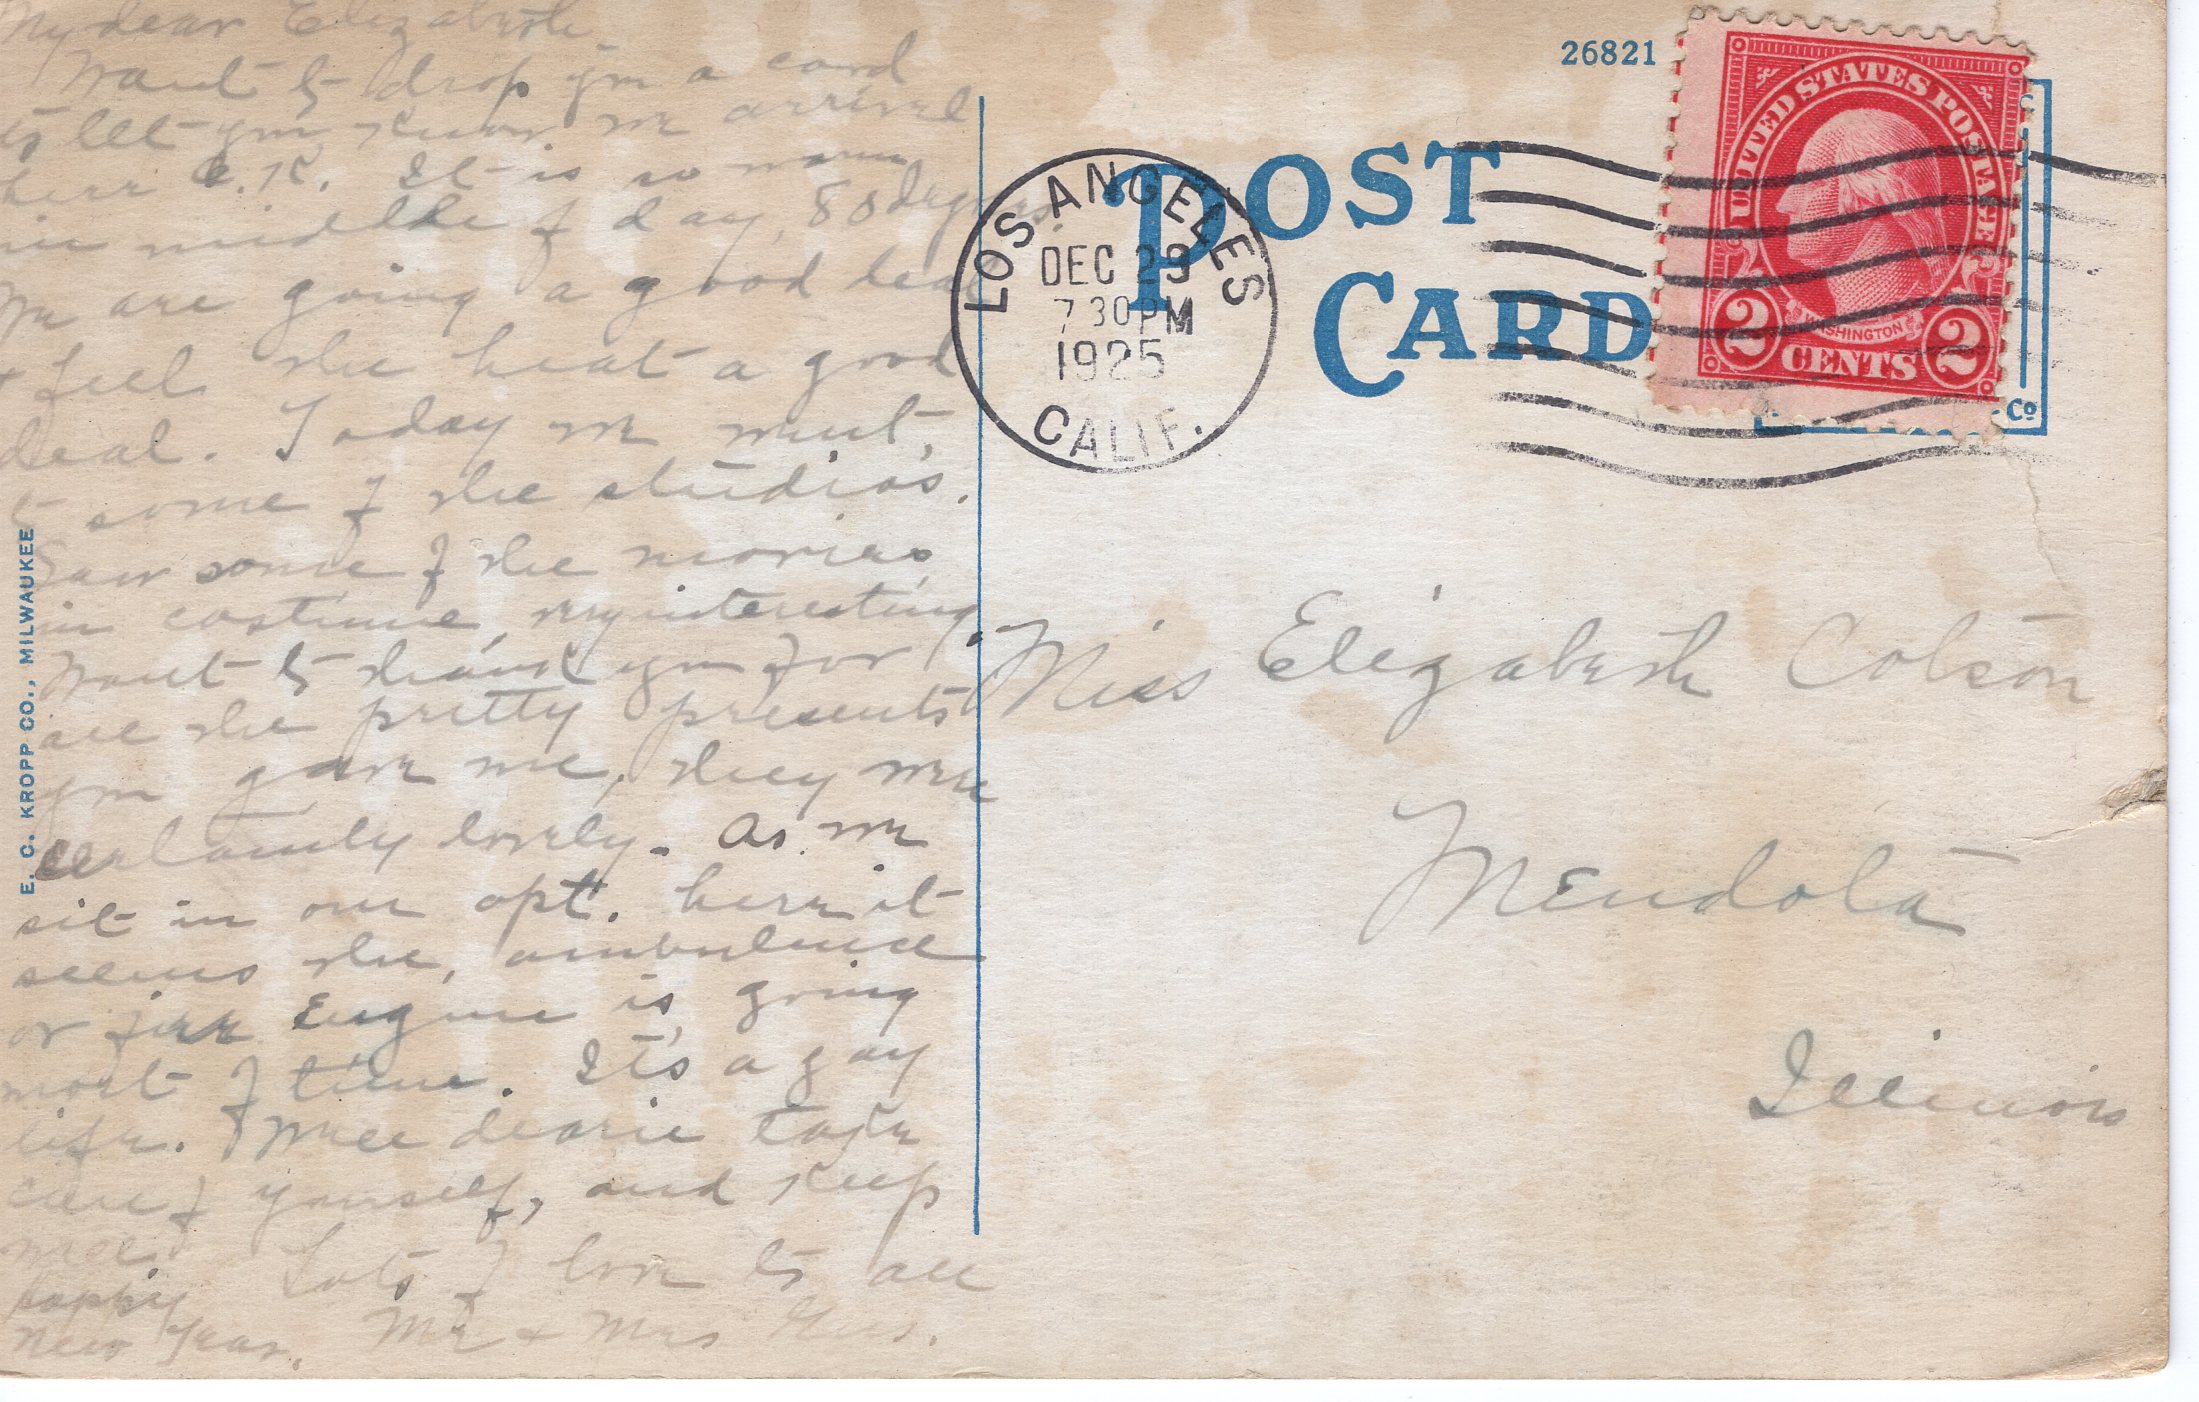 My dear Elizabeth,
Want to drop you a card
to let you know we arrived
here O.K. It is so warm
in middle of day, 80 degrees.
We are going a good deal
& feel the heat a good
deal. Today we went,
to some of the studios.
Saw some of the movies
in costume, very interesting.
Want to thank you for
all the pretty presents
you gave me, they were
certainly lovely. As we
sit in our apt. here it
seems the, ambulance
or fire Engine is, going
most of time. It's a gay
life. Well dearie take
care of yourself, and keep
well. Lots of love to all
Happy
New Year. Mr & Mrs
E. C. KROPP CO., MILWAUKEE
26821
POST
CARD
LOS ANGELES
DEC 29
7 30 PM
1925
CALIF.
UNITED STATES POSTAGE
WASHINGTON
2 CENTS 2
Co
Miss Elizabeth Colson
Mendota
Illinois